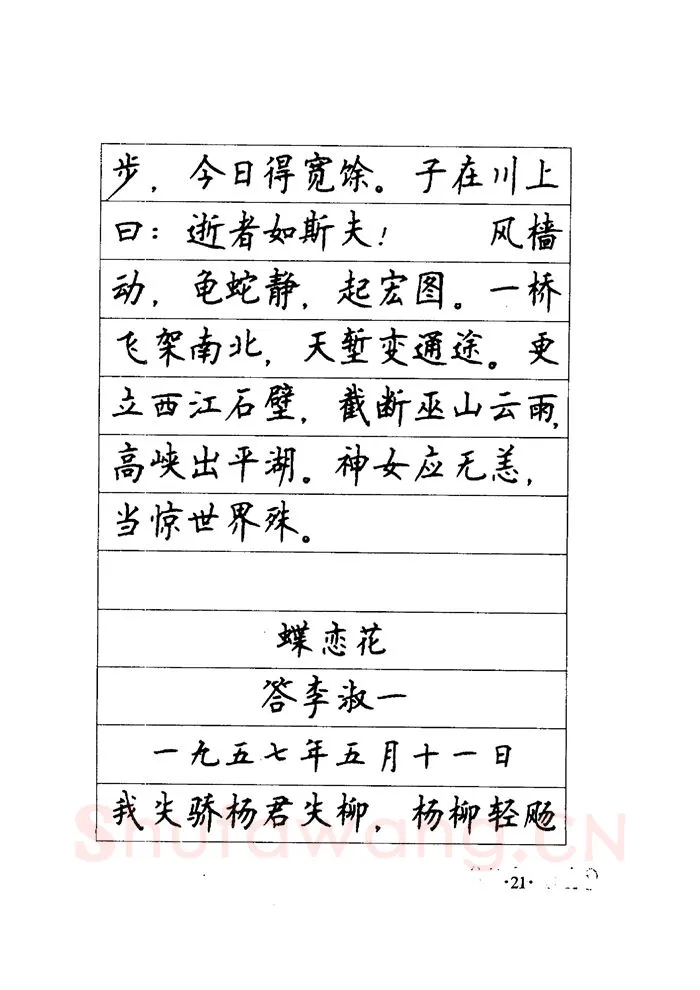 步，今日得宽馀。子在川上
曰：逝者如斯夫！　　风樯
动，龟蛇静，起宏图。一桥
飞架南北，天堑变通途。更
立西江石壁，截断巫山云雨，
高峡出平湖。神女应无恙，
当惊世界殊。
蝶恋花
答李淑一
一九五七年五月十一日
我失骄杨君失柳，杨柳轻飏
Shufawang.CN
·21·